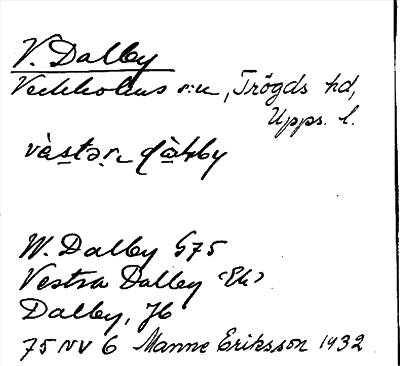 V. Dalby
Veckholms s:n, Trögds hd,
Upps. l.
våstər dàlby
W. Dalby G75
Vestra Dalby <Ek>
Dalby, Jb
75 NV 6 Manne Eriksson 1932